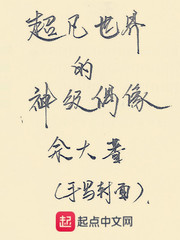 超凡世界
的
神级偶像
(手写封面)
起 起点中文网